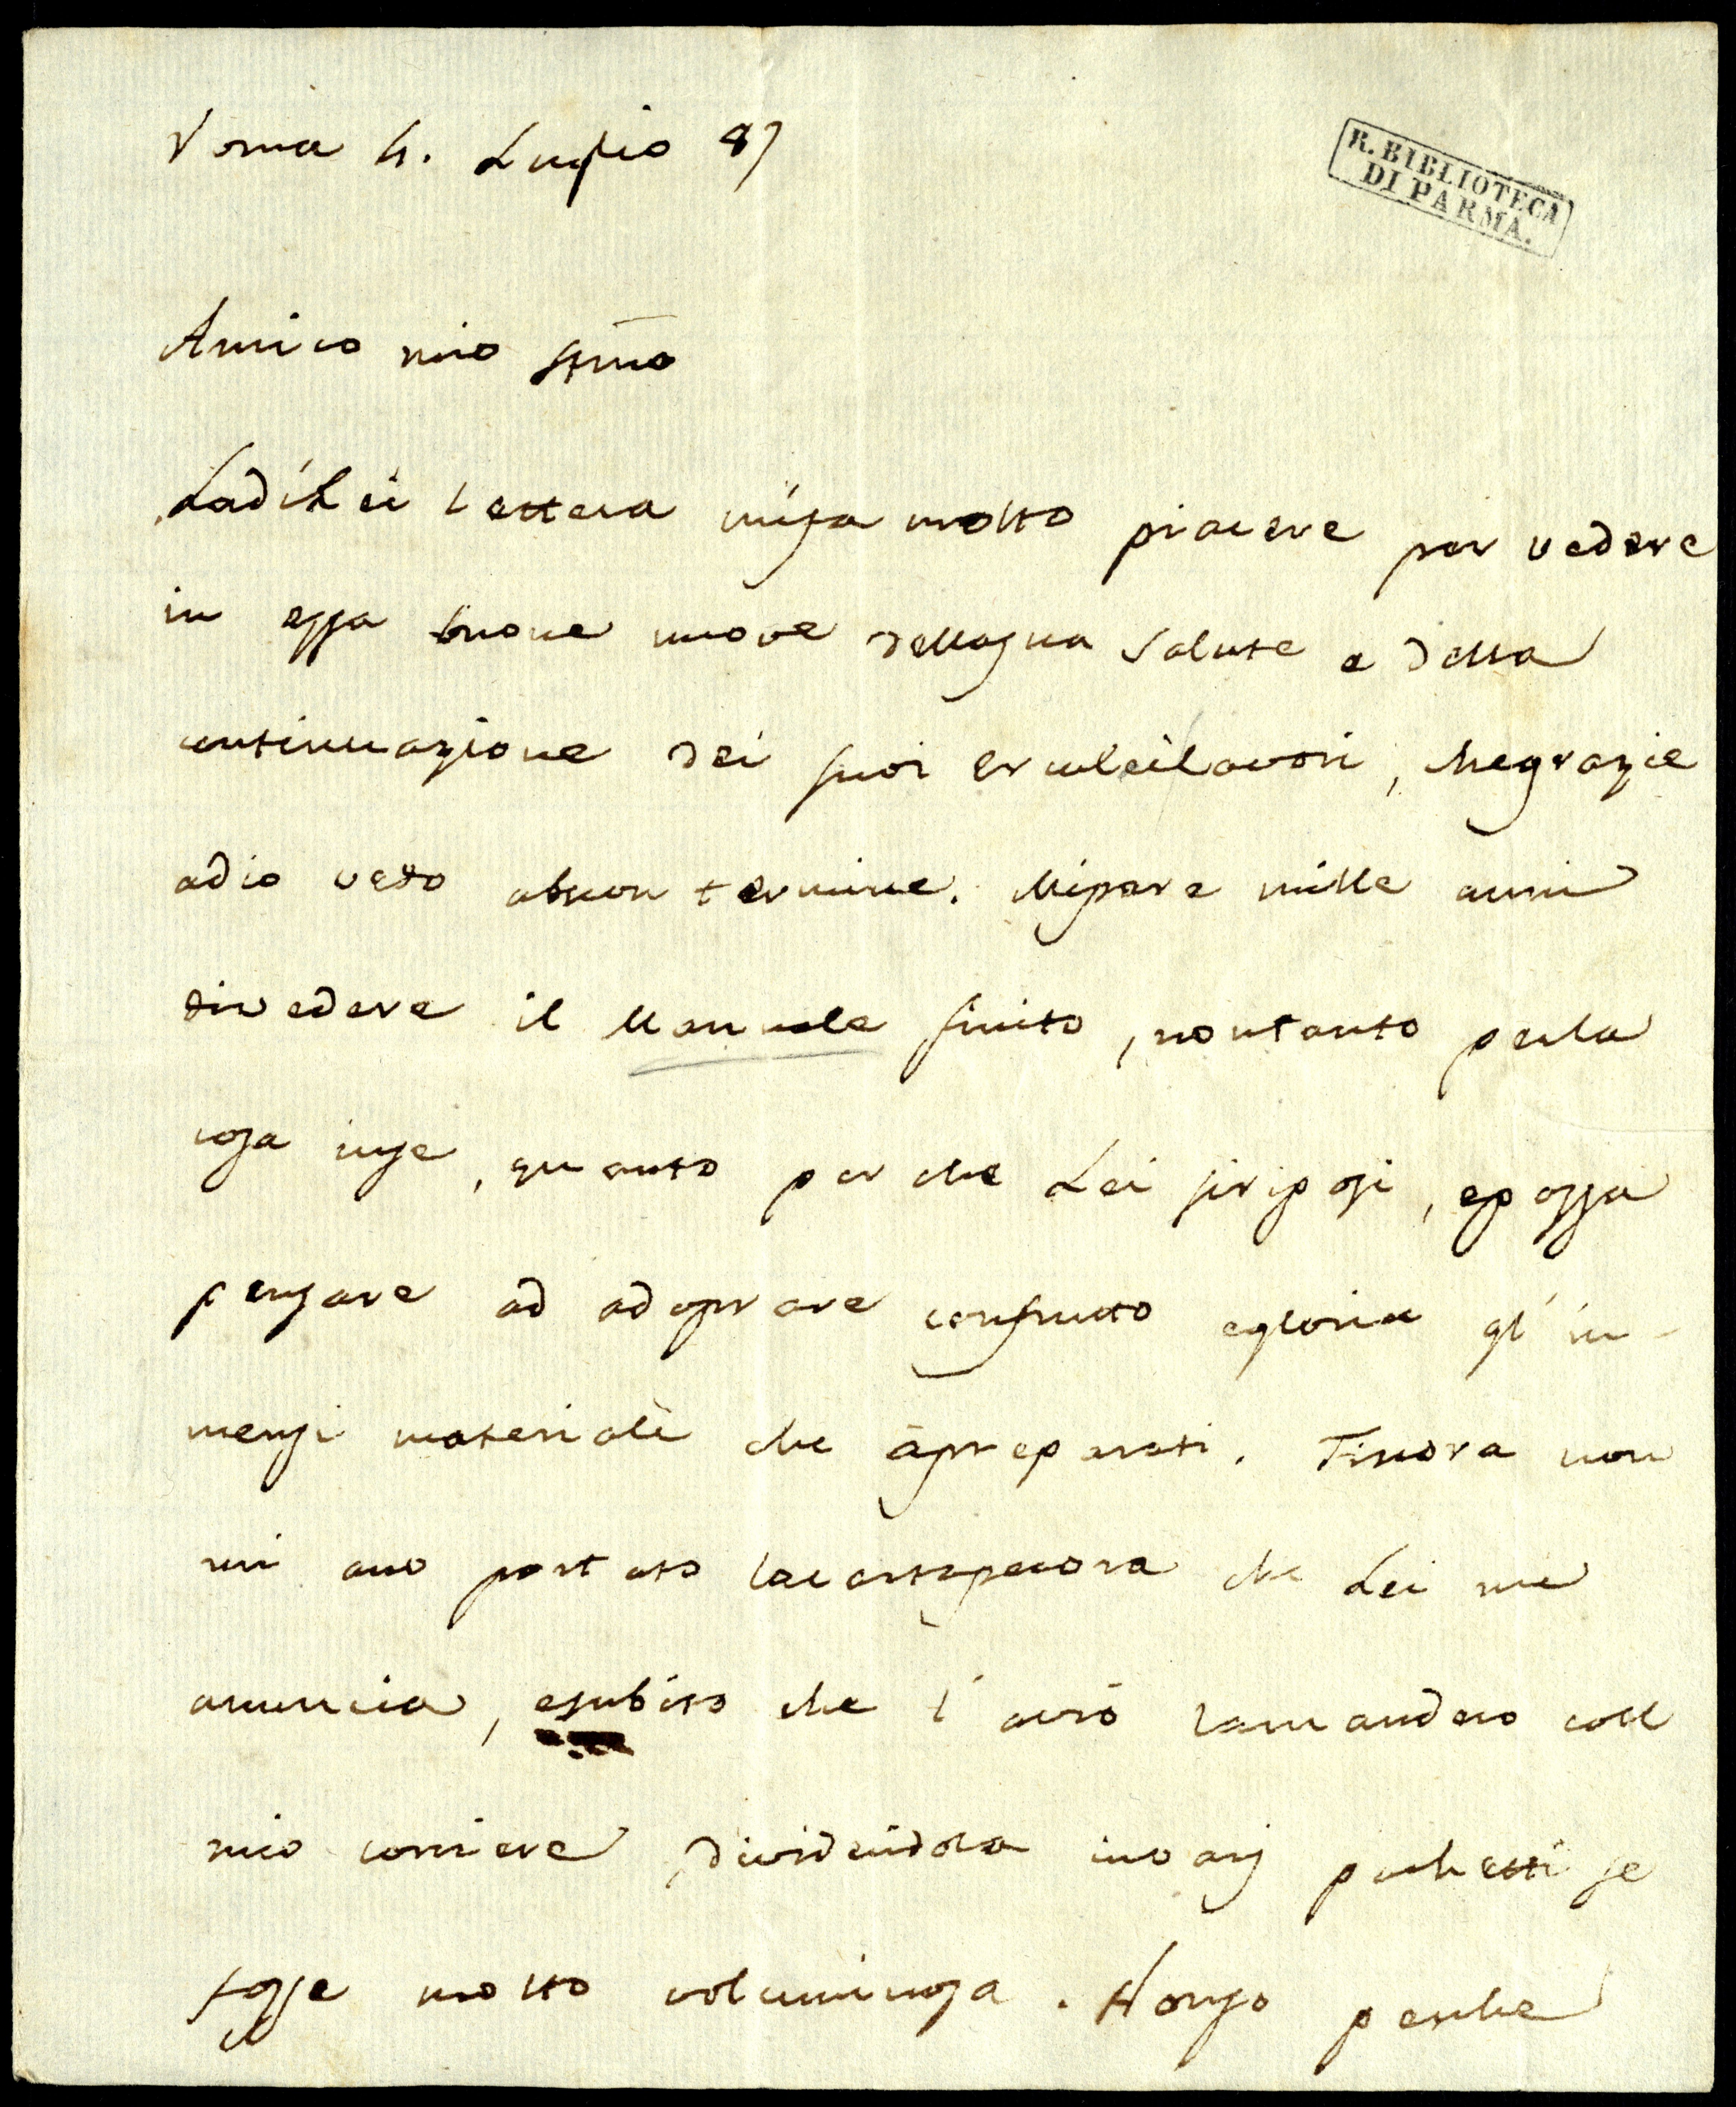 Roma 4. Luglio 87
R. BIBLIOTECA
DI PARMA.
Amico mio stimo
La di Lei lettera mi fa molto piacere per vedere
in essa buone nuove della sua salute e della
continuazione dei suoi erculei lavori, che grazie
a dio vedo a buon termine. Mi pare mille anni
di vedere il Manuale finito, non tanto per la
cosa in se, quanto perche Lei si riposi, e possa
pensare ad adoprare con frutto e gloria gl'im-
mensi materiali che à preparati. Finora non
mi ano portato la cartapecora che Lei me
anuncia, e subito che l'avrò la manderò col
mio corriere, dividendola in varj pachetti se
fosse molto voluminosa. Non so perche